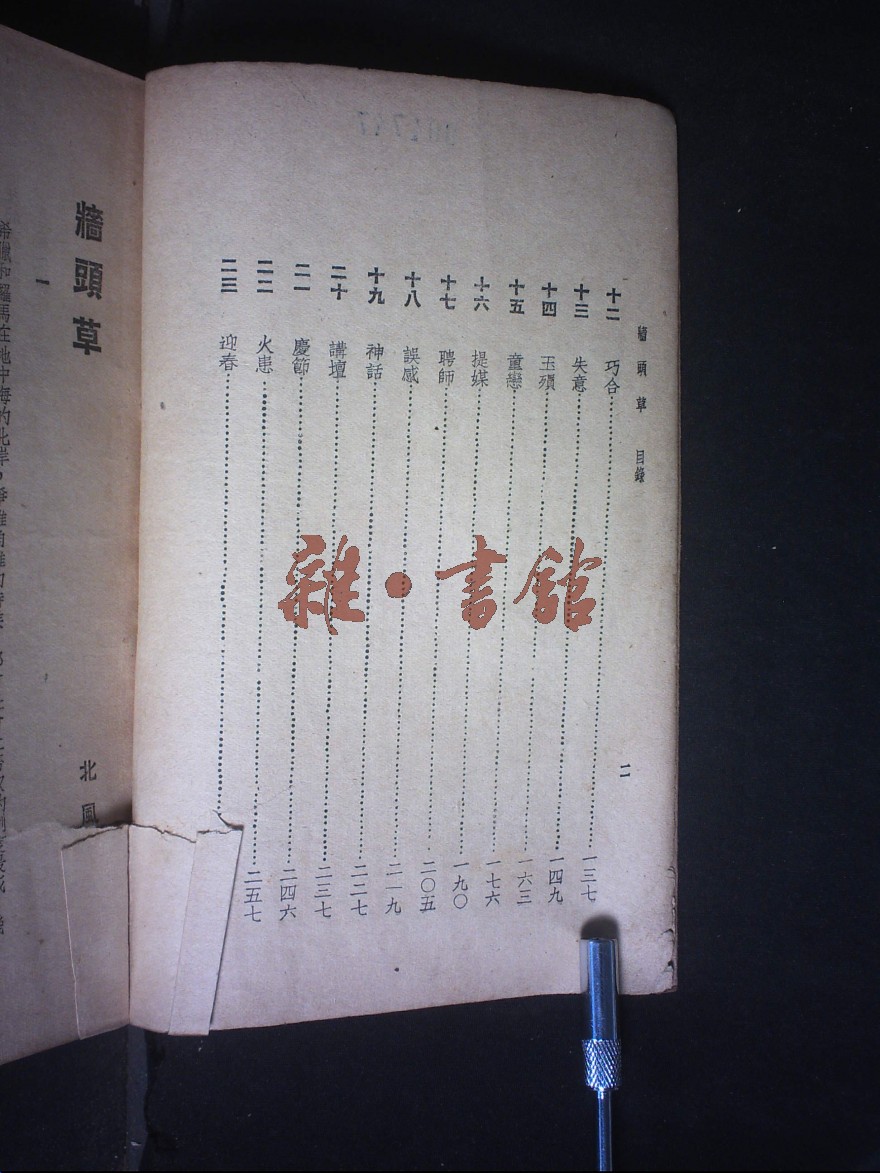 牆頭草 目錄
二
十二 巧合 一三七
十三 失意 一四九
十四 玉殞 一六三
十五 童戀 一七六
十六 提媒 一九〇
十七 聘師 二〇五
十八 誤感 二一九
十九 神話 二二七
二十 講壇 二三七
二一 慶節 二四六
二二 火患 二五七
二三 迎春
雜·書館
牆頭草
北風
一
希臘和羅馬在地中海的北岸,